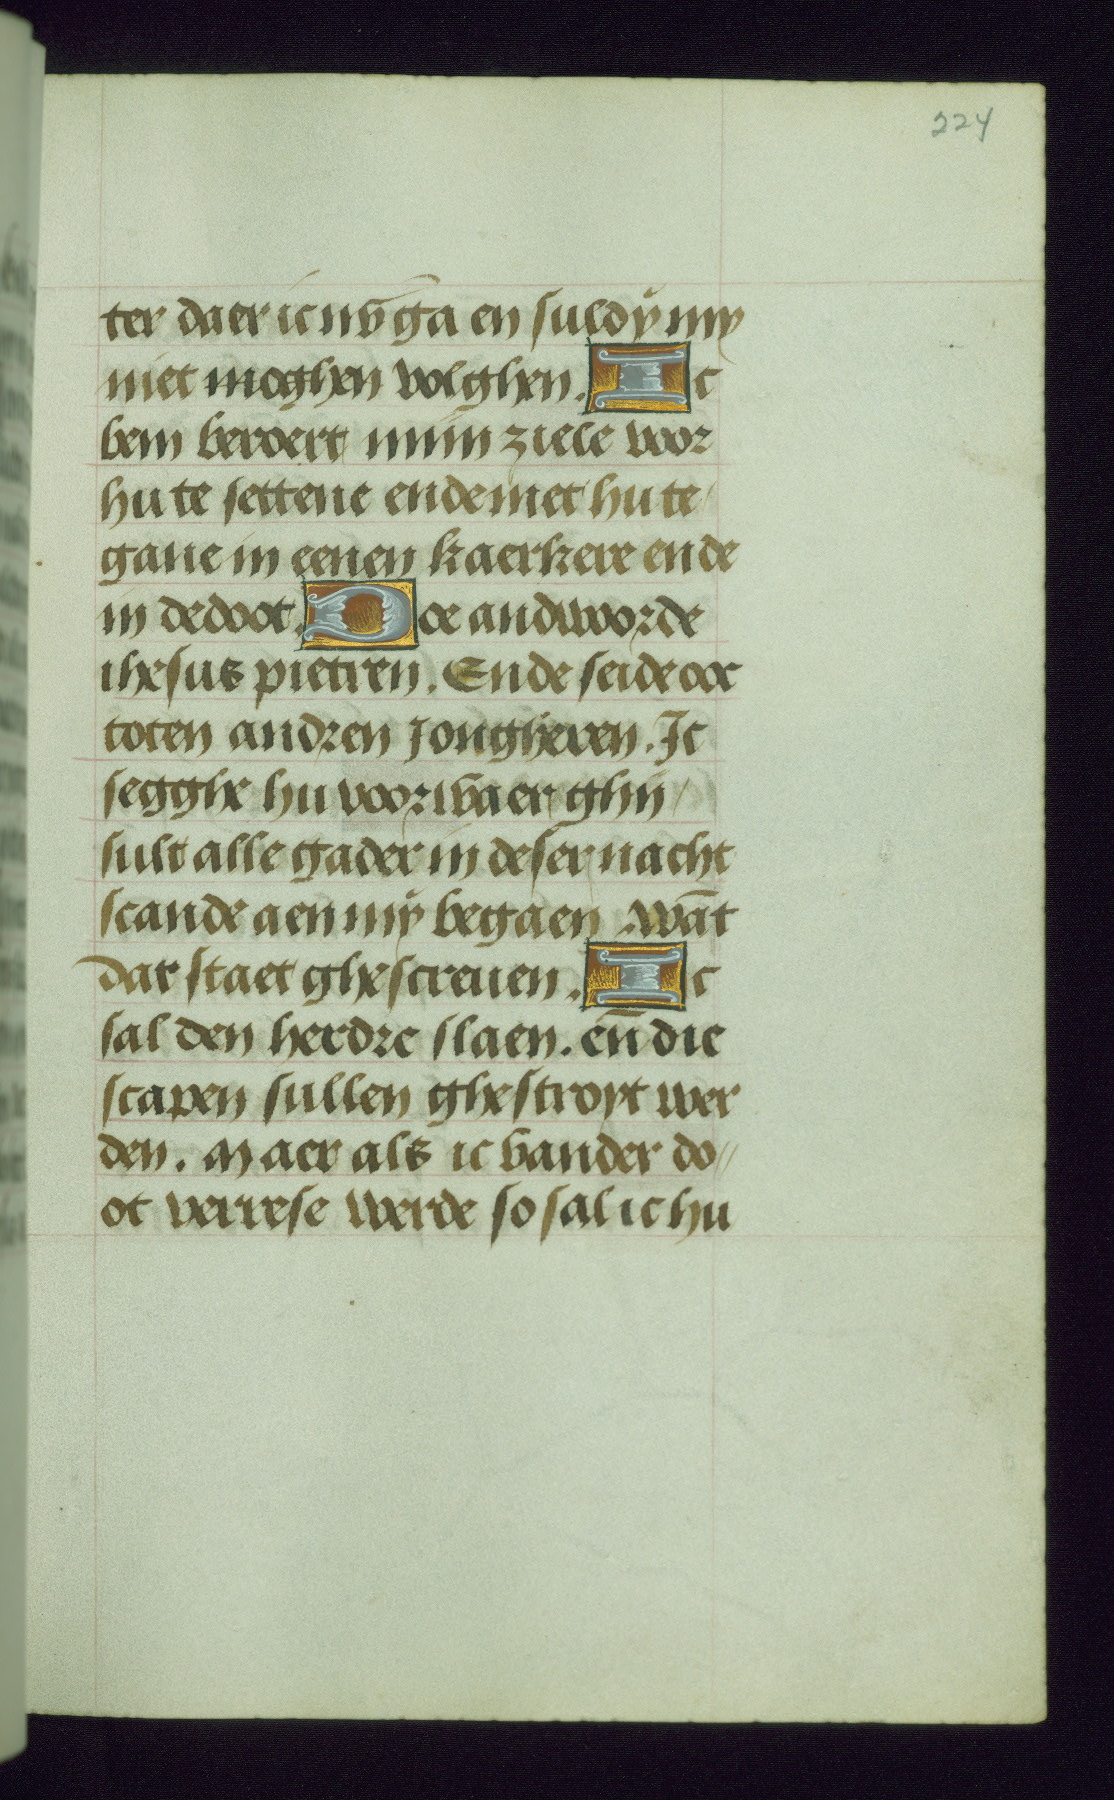 224
ter daer ic nv ga en suldy my
niet moghen volghen. Ic
bem beroert miin ziele voor
hu te settene ende met hu te
gane in eenen kaerkere ende
in de doot. Doe andwoorde
ihesus pietren. Ende seide oec
toten andren Jongheren. Ic
segghe hu voorwaer ghij
sult alle gader in deser nacht
scande aen my begaen. wāt
dat staet ghescreuen. Ic
sal den herdre slaen. eñ die
scapen sullen ghestroyt wer
den. Maer als ic vander do
ot verrese werde so sal ic hu